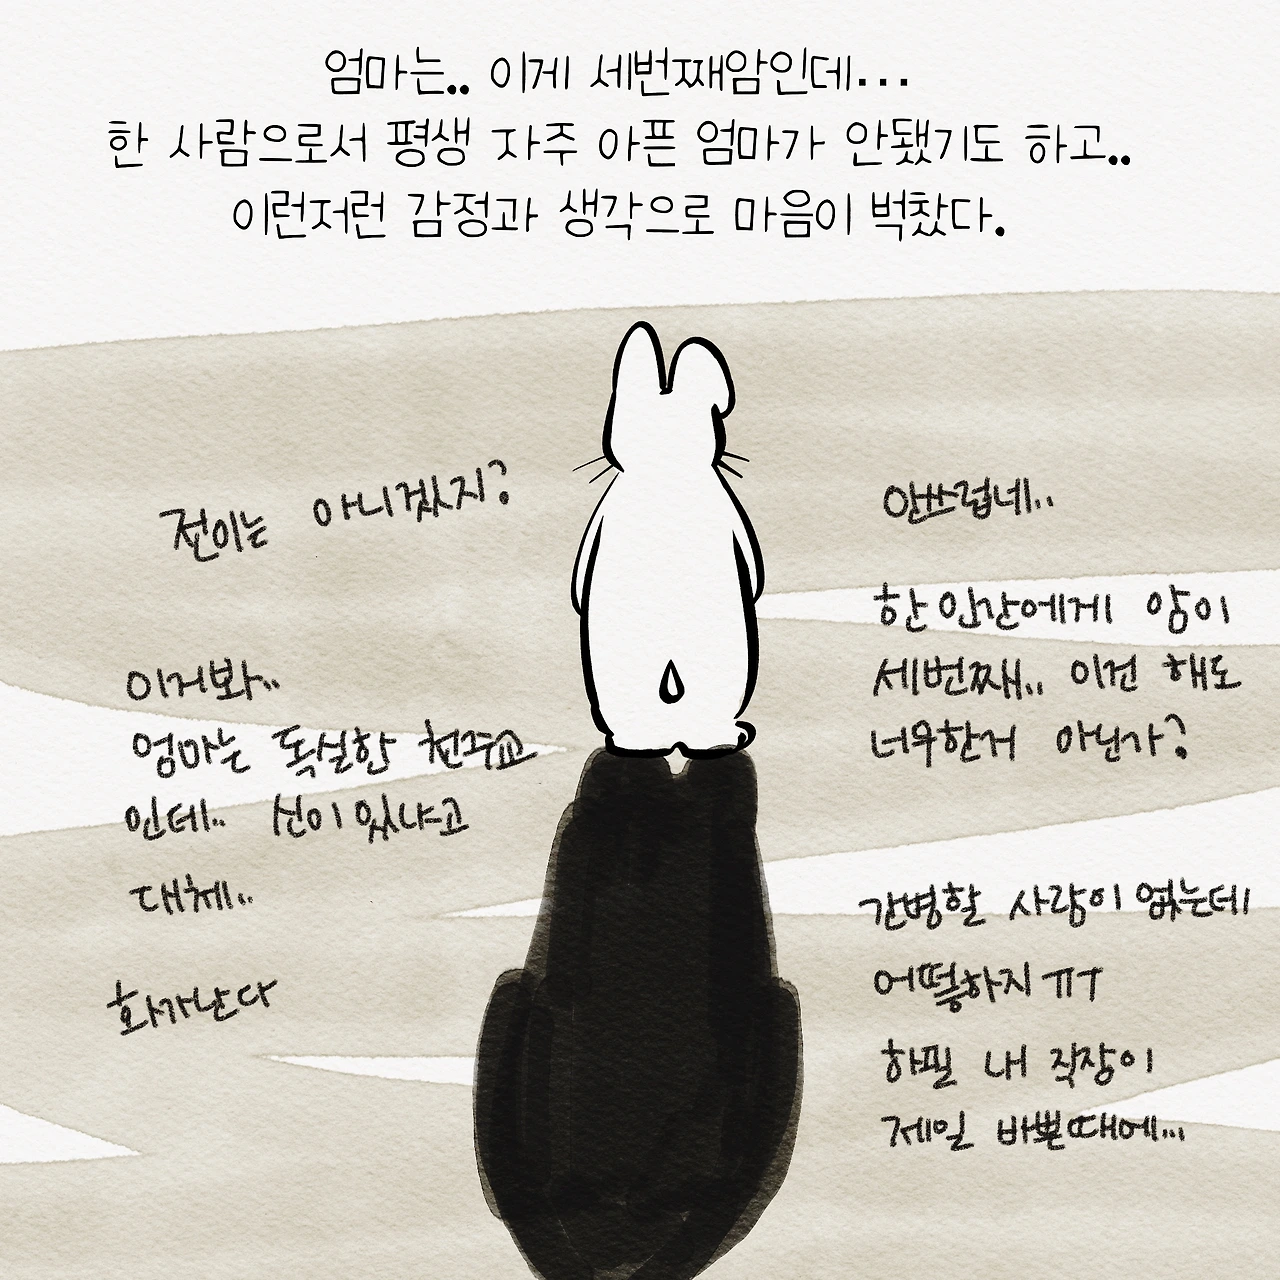 엄마는.. 이게 세번째암인데...
한 사람으로서 평생 자주 아픈 엄마가 안됐기도 하고..
이런저런 감정과 생각으로 마음이 벅찼다.
전이는 아니겠지?
이거봐..
엄마는 독실한 천주교
인데.. 신이 있냐고
대체..
화가난다
안쓰럽네..
한 인간에게 암이
세번째.. 이건 해도
너무한거 아닌가?
간병할 사람이 없는데
어떻하지 ㅠㅜ
하필 내 직장이
제일 바쁜때에...